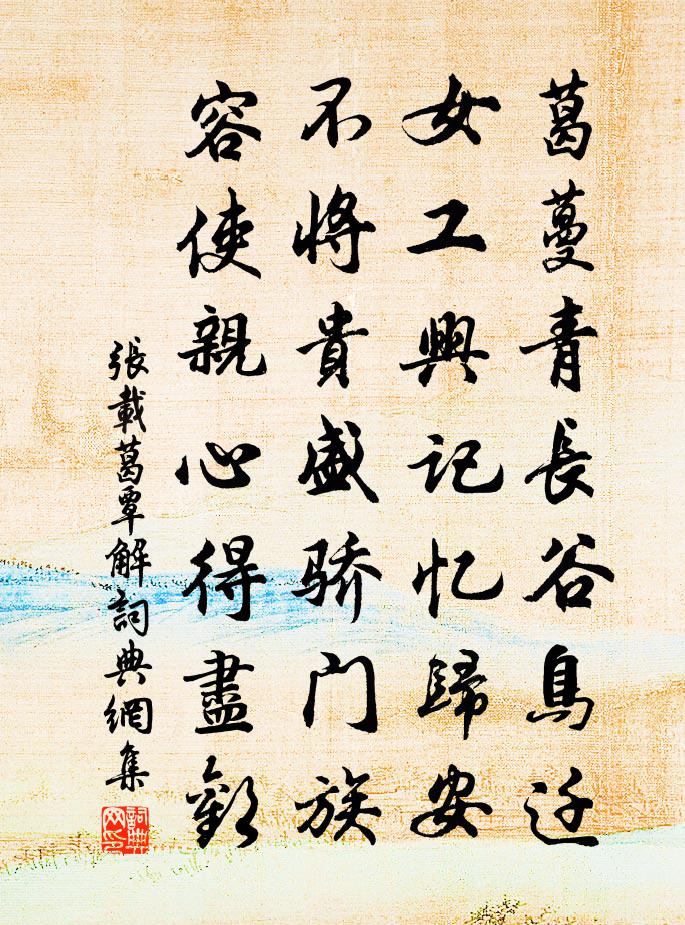 葛蔓青長谷鳥迁
女工興记忆歸安
不將貴盛骄门族
容使親心得盡歡
張載葛覃解詞典網集
詞典
网印